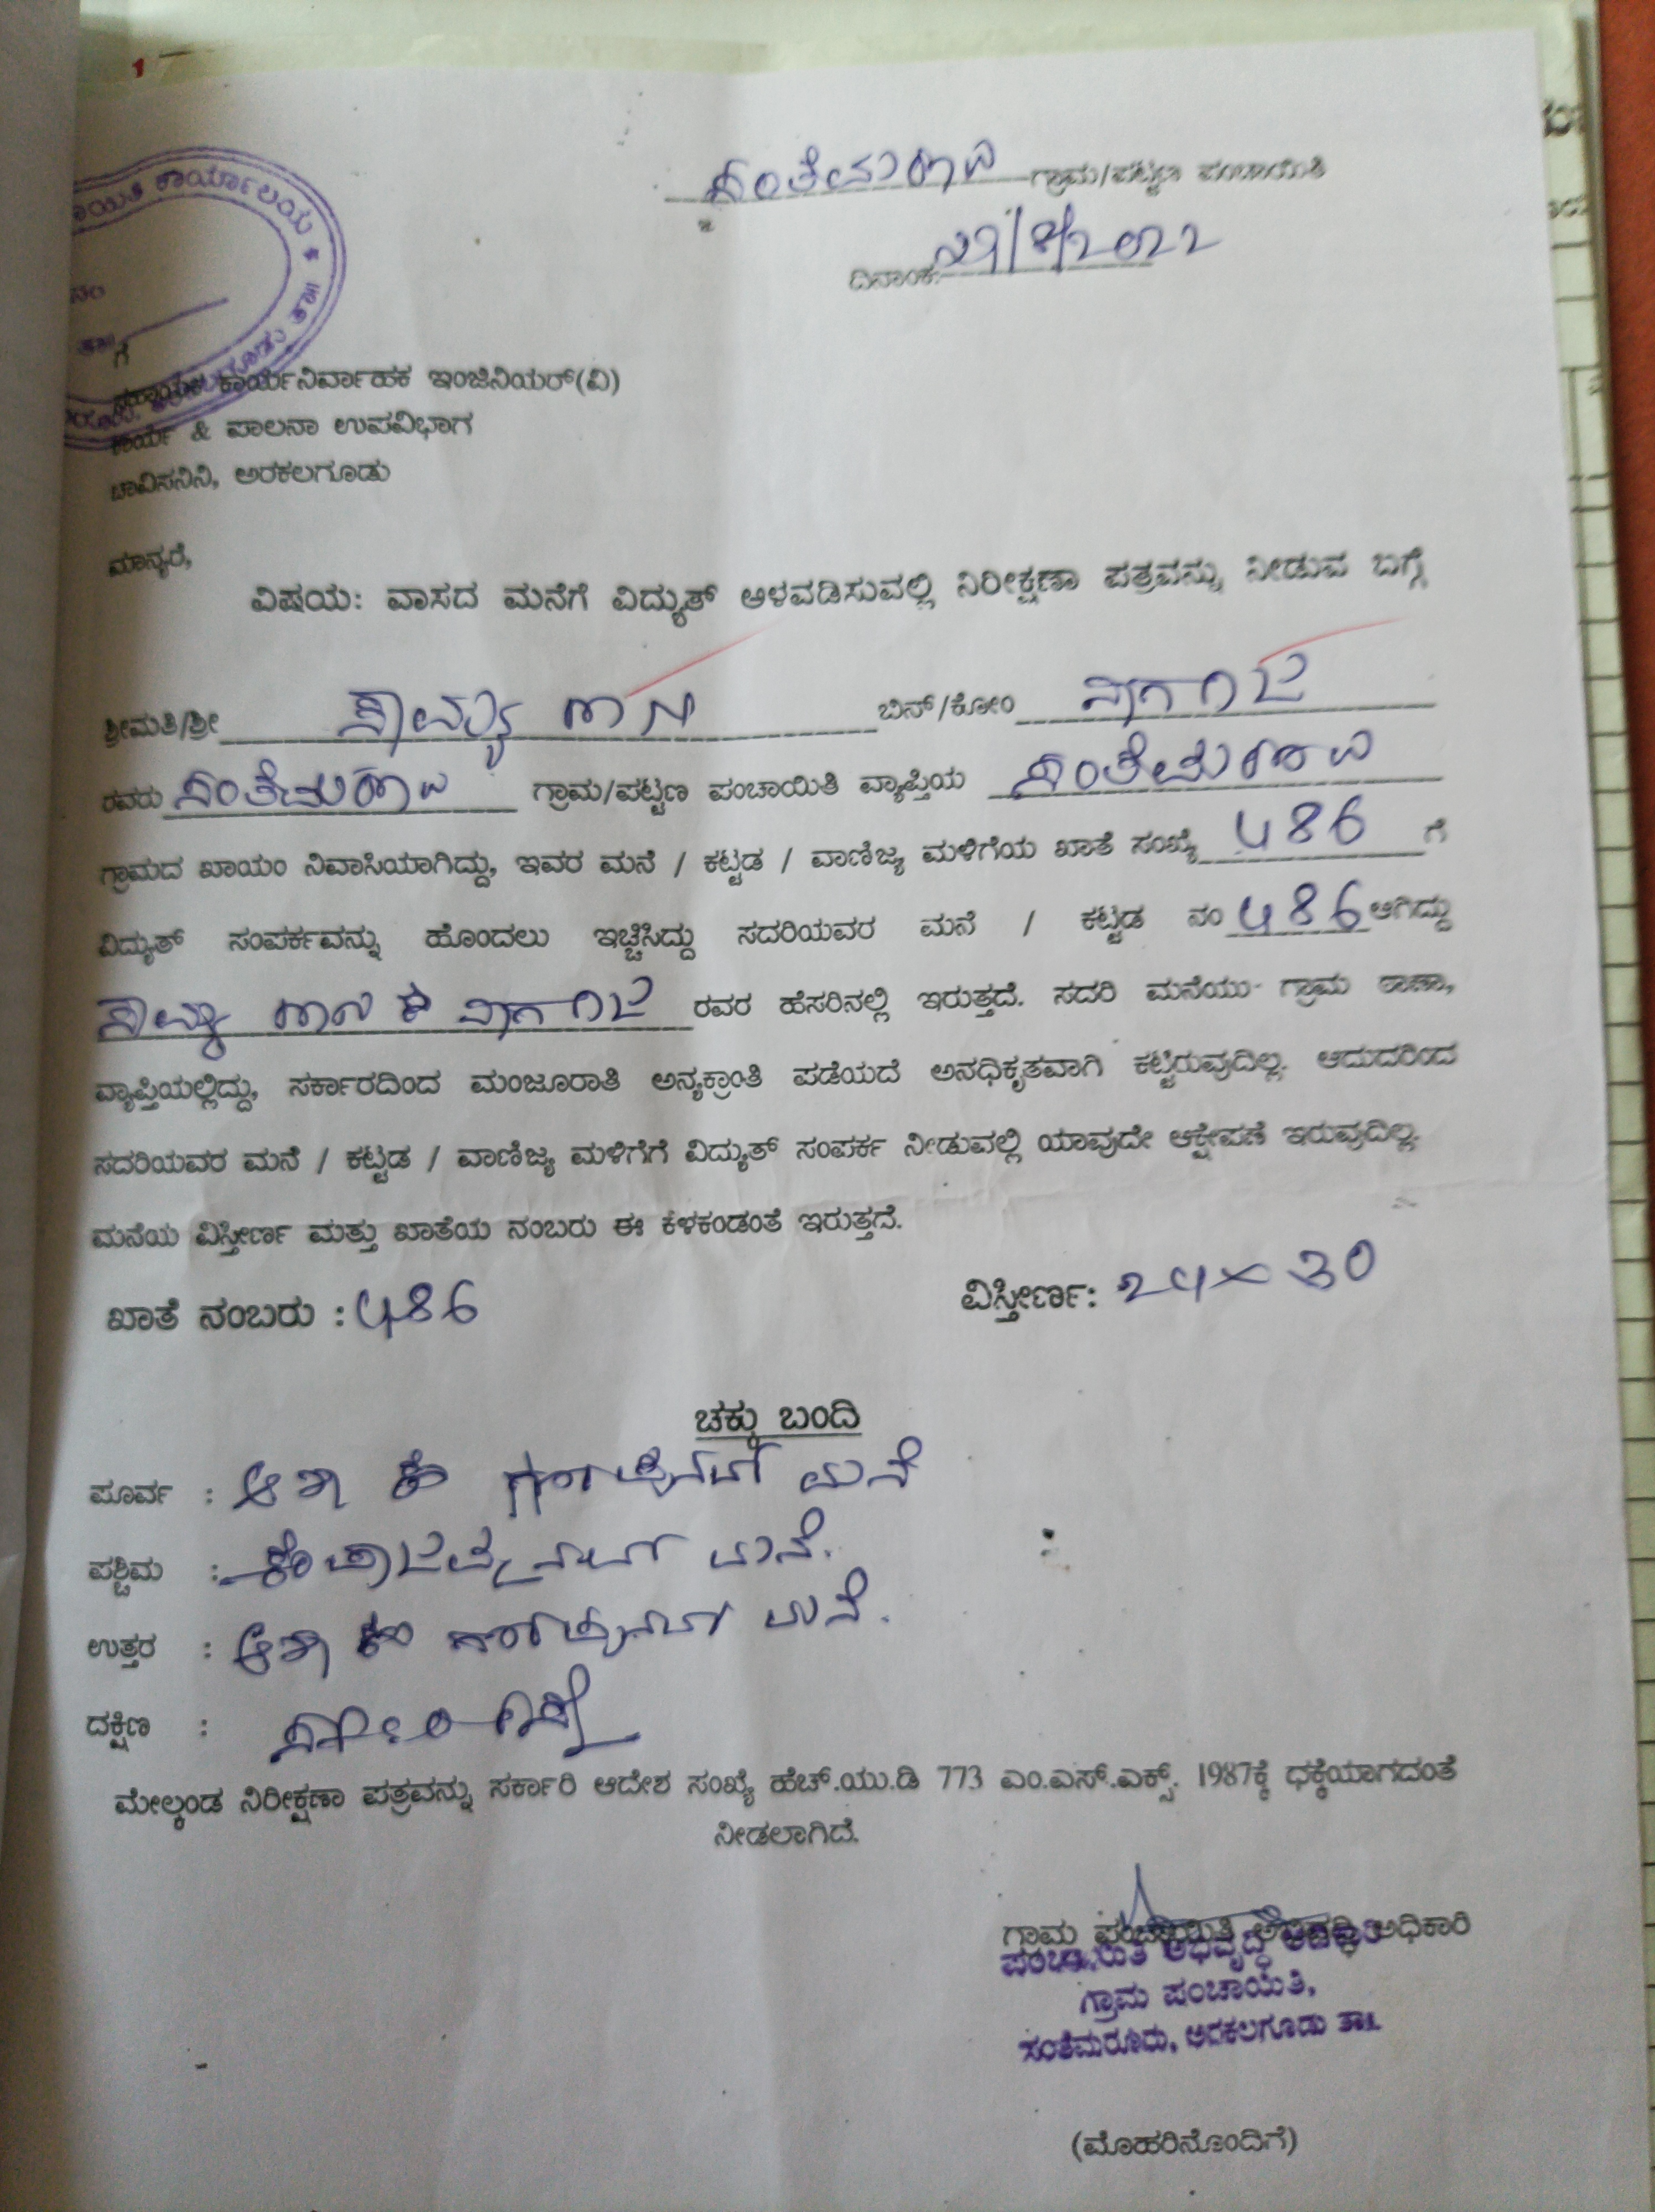 ಗ್ರಾಮ/ಪಟ್ಟಣ ಪಂಚಾಯಿತಿ
ದಿನಾಂಕ: /8/2022
ಕಾರ್ಯಾಲಯ *
ಗೆ
ಸಹಾಯಕ ಕಾರ್ಯನಿರ್ವಾಹಕ ಇಂಜಿನಿಯರ್(ವಿ)
ಕಾರ್ಯ & ಪಾಲನಾ ಉಪವಿಭಾಗ
ಚಾವಿಸನಿನಿ, ಅರಕಲಗೂಡು
ಮಾನ್ಯರೆ,
ವಿಷಯ: ವಾಸದ ಮನೆಗೆ ವಿದ್ಯುತ್ ಅಳವಡಿಸುವಲ್ಲಿ ನಿರೀಕ್ಷಣಾ ಪತ್ರವನ್ನು ನೀಡುವ ಬಗ್ಗೆ
ಶ್ರೀಮತಿ/ಶ್ರೀ ಬಿನ್/ಕೋಂ ನಾಗರಾಜ
ರವರು ಗ್ರಾಮ/ಪಟ್ಟಣ ಪಂಚಾಯಿತಿ ವ್ಯಾಪ್ತಿಯ
ಗ್ರಾಮದ ಖಾಯಂ ನಿವಾಸಿಯಾಗಿದ್ದು, ಇವರ ಮನೆ / ಕಟ್ಟಡ / ವಾಣಿಜ್ಯ ಮಳಿಗೆಯ ಖಾತೆ ಸಂಖ್ಯೆ 486 ಗೆ
ವಿದ್ಯುತ್ ಸಂಪರ್ಕವನ್ನು ಹೊಂದಲು ಇಚ್ಚಿಸಿದ್ದು ಸದರಿಯವರ ಮನೆ / ಕಟ್ಟಡ ನಂ 486 ಆಗಿದ್ದು
ನಾಗರಾಜ ರವರ ಹೆಸರಿನಲ್ಲಿ ಇರುತ್ತದೆ. ಸದರಿ ಮನೆಯು ಗ್ರಾಮ ಠಾಣಾ,
ವ್ಯಾಪ್ತಿಯಲ್ಲಿದ್ದು, ಸರ್ಕಾರದಿಂದ ಮಂಜೂರಾತಿ ಅನ್ಯಕ್ರಾಂತಿ ಪಡೆಯದೆ ಅನಧಿಕೃತವಾಗಿ ಕಟ್ಟಿರುವುದಿಲ್ಲ. ಆದುದರಿಂದ
ಸದರಿಯವರ ಮನೆ / ಕಟ್ಟಡ / ವಾಣಿಜ್ಯ ಮಳಿಗೆಗೆ ವಿದ್ಯುತ್ ಸಂಪರ್ಕ ನೀಡುವಲ್ಲಿ ಯಾವುದೇ ಆಕ್ಷೇಪಣೆ ಇರುವುದಿಲ್ಲ.
ಮನೆಯ ವಿಸ್ತೀರ್ಣ ಮತ್ತು ಖಾತೆಯ ನಂಬರು ಈ ಕೆಳಕಂಡಂತೆ ಇರುತ್ತದೆ.
ಖಾತೆ ನಂಬರು : 486 ವಿಸ್ತೀರ್ಣ: 24 × 30
ಚಕ್ಕು ಬಂದಿ
ಪೂರ್ವ : ಮನೆ
ಪಶ್ಚಿಮ : ಮನೆ.
ಉತ್ತರ : ಮನೆ.
ದಕ್ಷಿಣ :
ಮೇಲ್ಕಂಡ ನಿರೀಕ್ಷಣಾ ಪತ್ರವನ್ನು ಸರ್ಕಾರಿ ಆದೇಶ ಸಂಖ್ಯೆ ಹೆಚ್.ಯು.ಡಿ 773 ಎಂ.ಎಸ್.ಎಕ್ಸ್. 1987ಕ್ಕೆ ಧಕ್ಕೆಯಾಗದಂತೆ
ನೀಡಲಾಗಿದೆ.
ಗ್ರಾಮ ಪಂಚಾಯಿತಿ ಅಭಿವೃದ್ಧಿ ಅಧಿಕಾರಿ
ಪಂಚಾಯಿತಿ ಅಭಿವೃದ್ಧಿ ಅಧಿಕಾರಿ
ಗ್ರಾಮ ಪಂಚಾಯಿತಿ,
ಸಂತೆಮರೂರು, ಅರಕಲಗೂಡು ತಾ॥
(ಮೊಹರಿನೊಂದಿಗೆ)